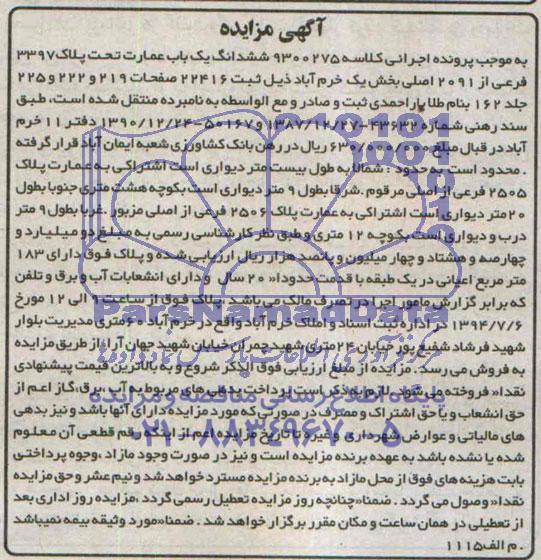 آگهی مزایده
به موجب پرونده اجرائی کلاسه ۹۳۰۰۲۷۵ ششدانگ یک باب عمارت تحت پلاک ۳۳۹۷
فرعی از ۲۰۹۱ اصلی بخش یک خرم آباد ذیل ثبت ۲۲۴۱۶ صفحات ۲۱۹ و ۲۲۲ و ۲۲۵
جلد ۱۶۲ بنام طلا یاراحمدی ثبت و صادر و مع الواسطه به نامبرده منتقل شده است، طبق
سند رهنی شماره ۴۳۶۳۲-۱۳۸۷/۱۲/۲۷ و ۵۰۱۶۷-۱۳۹۰/۱۲/۲۴ دفتر ۱۱ خرم
آباد در قبال مبلغ ۶۳۰/۰۰۰/۰۰۰ ریال در رهن بانک کشاورزی شعبه ایمان آباد قرار گرفته
. محدود است به حدود : شمالا به طول بیست متر دیواری است اشتراکی به عمارت پلاک
۲۵۰۵ فرعی از اصلی مرقوم .شرقا بطول ۹ متر دیواری است بکوچه هشت متری جنوبا بطول
۲۰متر دیواری است اشتراکی به عمارت پلاک ۲۵۰۶ فرعی از اصلی مزبور .غربا بطول ۹ متر
درب و دیواری است بکوچه ۱۲ متری و طبق نظر کارشناسی رسمی به مبلغ دو میلیارد و
چهارصد و هشتاد و چهار میلیون و پانصد هزار ریال ارزیابی شده و پلاک فوق دارای ۱۸۳
متر مربع اعیانی در یک طبقه با قدمت حدودا« ۲۰ سال و دارای انشعابات آب و برق و تلفن
که برابر گزارش مامور اجرا در تصرف مالک می باشد .پلاک فوق از ساعت ۹ الی ۱۲ مورخ
۱۳۹۴/۷/۶ در اداره ثبت اسناد و املاک خرم آباد واقع در خرم آباد ۶۰متری مدیریت بلوار
شهید فرشاد شفیع پور خیابان ۲۴متری شهید چمران خیابان شهید جهان آرا، از طریق مزایده
به فروش می رسد . مزایده از مبلغ ارزیابی فوق الذکر شروع و به بالاترین قیمت پیشنهادی
نقدا« فروخته می شود. لازم بذکر است پرداخت بدهی های مربوط به آب ،برق،گاز اعم از
حق انشعاب و یا حق اشتراک و مصرف در صورتی که مورد مزایده دارای آنها باشد و نیز بدهی
های مالیاتی و عوارض شهرداری و غیره تا تاریخ مزایده اعم از اینکه رقم قطعی آن معلوم
شده یا نشده باشد به عهده برنده مزایده است و نیز در صورت وجود مازاد ،وجوه پرداختی
بابت هزینه های فوق از محل مازاد به برنده مزایده مسترد خواهد شد و نیم عشر و حق مزایده
نقدا« وصول می گردد . ضمنا«چنانچه روز مزایده تعطیل رسمی گردد ،مزایده روز اداری بعد
از تعطیلی در همان ساعت و مکان مقرر برگزار خواهد شد . ضمنا«مورد وثیقه بیمه نمیباشد
. م الف۱۱۱۵
ParsNamadData
پایگاه اطلاع رسانی مناقصه و مزایده
۰۲۱-۸۸۳۴۹۶۷۰-۵